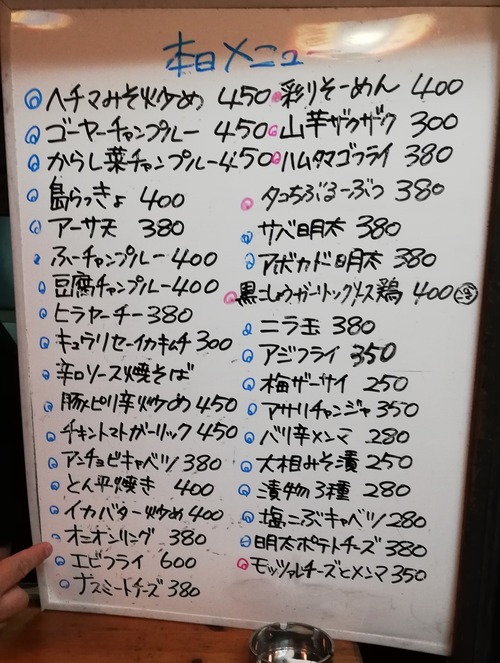 本日メニュー
ヘチマみそ炒め 450
ゴーヤーチャンプルー 450
からし菜チャンプルー 450
島らっきょ 400
アーサ天 380
ふーチャンプルー 400
豆腐チャンプルー 400
ヒラヤーチー 380
キュウリセーイカキムチ 300
辛口ソース焼そば
豚ピリ辛炒め 450
チキントマトガーリック 450
アンチョビキャベツ 380
とん平焼き 400
イカバター炒め 400
オニオンリング 380
エビフライ 600
ナスミートチーズ 380
彩りそーめん 400
山芋ザクザク 300
ハムタマゴフライ 380
タコちぶるーぶつ 380
サバ明太 380
アボカド明太 380
黒こしょうガーリックソース鶏 400
ニラ玉 380
アジフライ 350
梅ザーサイ 250
アサリチャンジャ 350
バリ辛メンマ 280
大根みそ漬 250
漬物3種 280
塩こぶキャベツ 280
明太ポテトチーズ 380
モッツァレチーズとメンマ 350